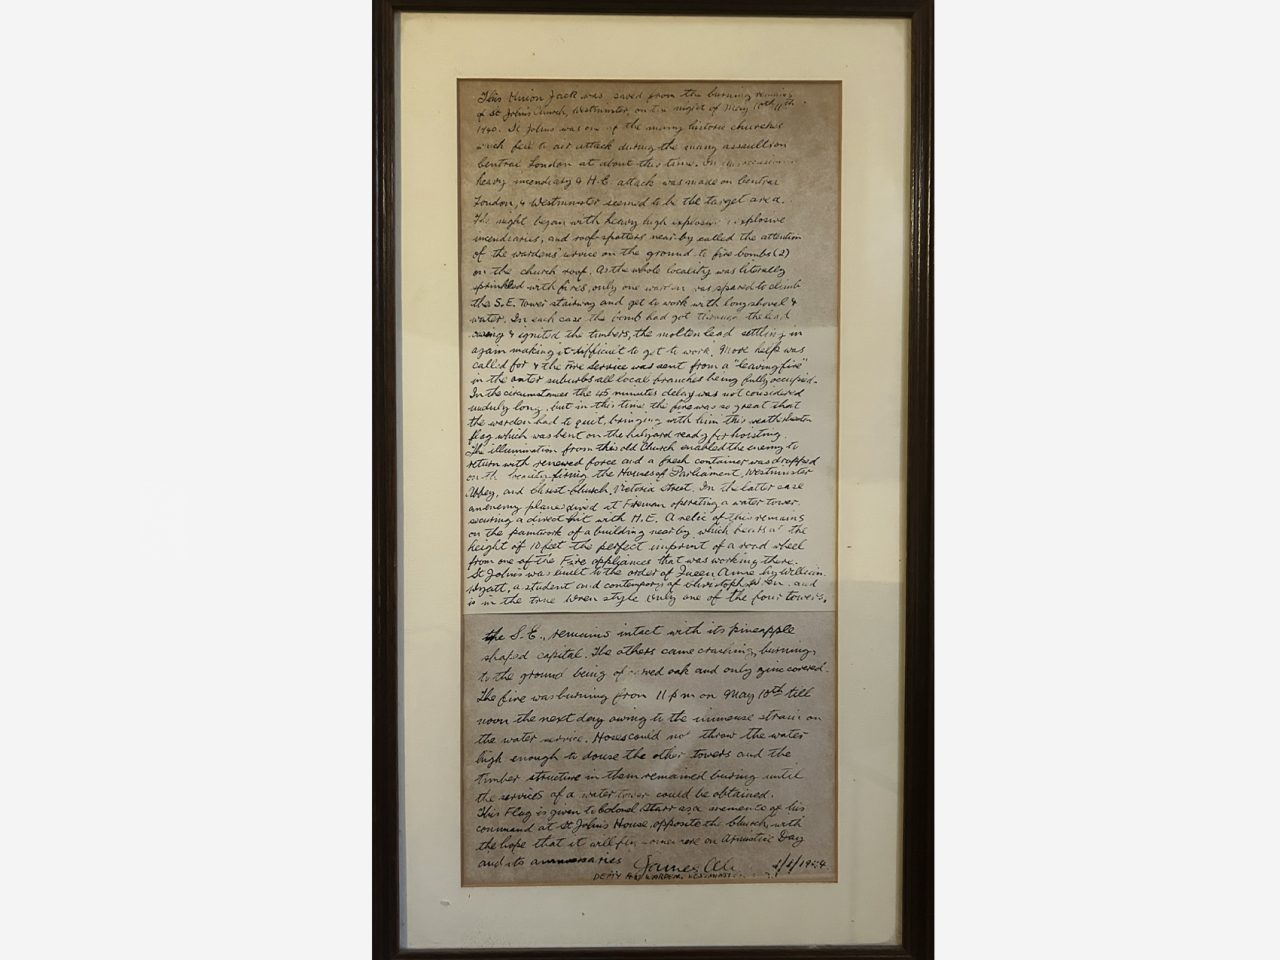 This Union Jack was saved from the burning remains
of St John's Church, Westminster, on the night of May 10th 11th
1940. St Johns was one of the many historic churches
which fell to air attack during the many assaults on
Central London at about this time. On this occasion
heavy incendiary & H.E. attack was made on Central
London, & Westminster seemed to be the target area.
The night began with heavy high explosive explosive
incendiaries, and roof-spotters near-by called the attention
of the wardens' service on the ground to fire bombs (2)
on the church roof. As the whole locality was literally
sprinkled with fires, only one warden was spared to climb
the S.E. Tower stairway and get to work with long shovel &
water. In each case the bomb had got through the lead
casing & ignited the timbers, the molten lead settling in
again making it difficult to get to work. More help was
called for & the Fire Service was sent from a "leaving fire"
in the outer suburbs all local branches being fully occupied.
In the circumstances the 45 minutes delay was not considered
unduly long, but in this time the fire was so great that
the warden had to quit, bringing with him this weatherbeaten
flag which was bent on the halyard ready for hoisting.
The illumination from this old Church enabled the enemy to
return with renewed force and a fresh container was dropped
on the locality firing the Houses of Parliament, Westminster
Abbey, and Christ Church, Victoria Street. In the latter case
an enemy plane dived at Fireman operating a water tower
securing a direct hit with H.E. A relic of this remains
on the paintwork of a building nearby which bears at the
height of 10 feet the perfect imprint of a road wheel
from one of the Fire appliances that was working there.
St Johns was built to the order of Queen Anne by William
Wyatt, a student and contempory of Christoph Wren and
is in the true Wren style. Only one of the four towers,
the S.E., remains intact with its pineapple
shaped capital. The others came crashing, burning,
to the ground being of carved oak and only zinc covered.
The fire was burning from 11 p m on May 10th till
noon the next day owing to the immense strain on
the water service. Hoses could not throw the water
high enough to douse the other towers and the
timber structure in them remained burning until
the services of a water tower could be obtained.
This Flag is given to Colonel Starr as a memento of his
command at St John's House, opposite the Church, with
the hope that it will fly once more on Armistice Day
and its anniversaries James
DEPTY POST WARDEN.